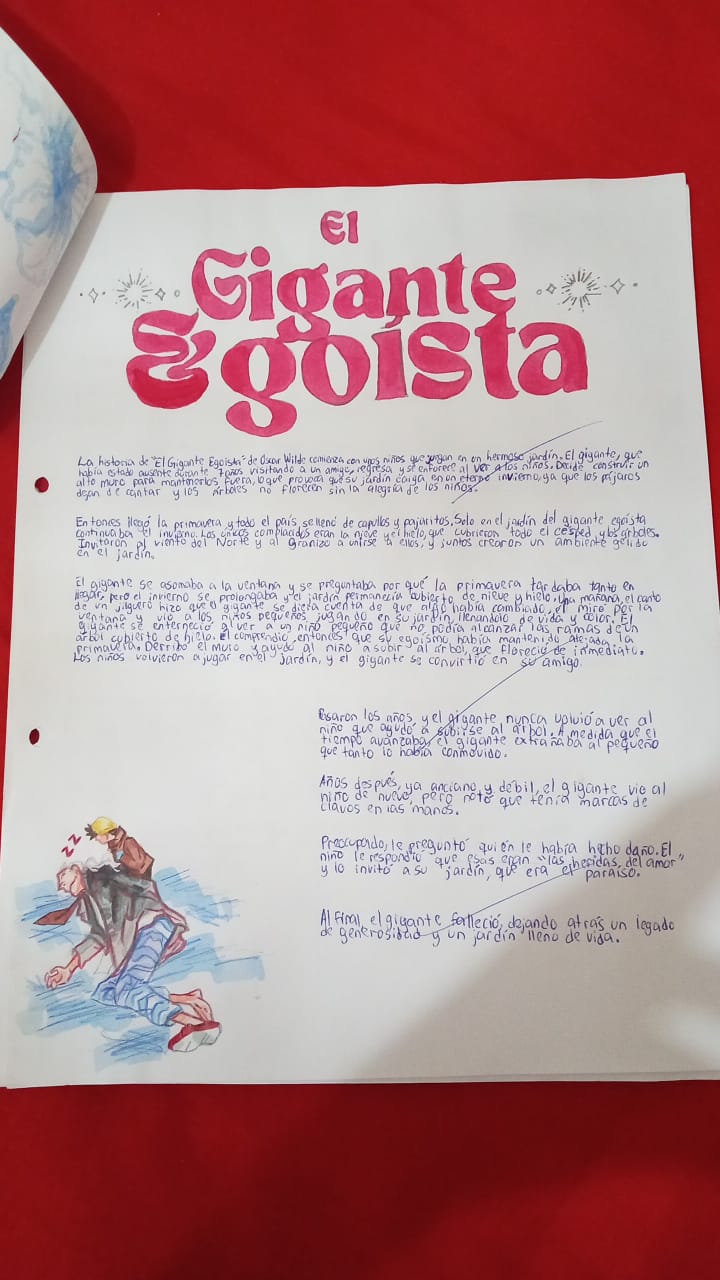 El
Gigante
Egoísta
La historia de "El Gigante Egoista" de Oscar Wilde comienza con unos niños que juegan en un hermoso jardín. El gigante, que
había estado ausente durante 7 años visitando a un amigo, regresa y se enfurece al ver a los niños. Decide construir un
alto muro para mantenerlos fuera, lo que provoca que su jardín caiga en un eterno invierno, ya que los pájaros
dejan de cantar y los árboles no florecen sin la alegría de los niños.
Entonces llegó la primavera y todo el país se llenó de capullos y pajaritos. Solo en el jardín del gigante egoísta
continuaba el invierno. Los únicos complacidos eran la nieve y el hielo, que cubrieron todo el césped y los árboles.
Invitaron al viento del Norte y al Granizo a unirse a ellos, y juntos crearon un ambiente gélido
en el jardín.
El gigante se asomaba a la ventana y se preguntaba por qué la primavera tardaba tanto en
llegar, pero el invierno se prolongaba y el jardín permanecía cubierto de nieve y hielo. Una mañana, el canto
de un jilguero hizo que el gigante se diera cuenta de que algo había cambiado, el miró por la
ventana y vió a los niños pequeños jugando en su jardín, llenándolo de vida y color. El
gigante se enterneció al ver a un niño pequeño que no podía alcanzar las ramas de un
árbol cubierto de hielo. El comprendió, entonces que su egoismo había mantenido alejada la
primavera. Derribó el muro y ayudó al niño a subir al árbol, que floreció de inmediato.
Los niños volvieron a jugar en el jardín, y el gigante se convirtió en su amigo.
Pasaron los años, y el gigante nunca volvió a ver al
niño que ayudó a subirse al árbol. A medida que el
tiempo avanzaba, el gigante extrañaba al pequeño
que tanto lo había conmovido.
Años después, ya anciano y débil, el gigante vio al
niño de nuevo, pero notó que tenía marcas de
clavos en las manos.
Preocupado, le preguntó quién le había hecho daño. El
niño le respondió que esas eran "las heridas del amor"
y lo invitó a su jardín, que era el paraíso.
Al final, el gigante falleció, dejando atrás un legado
de generosidad y un jardín lleno de vida.
zz